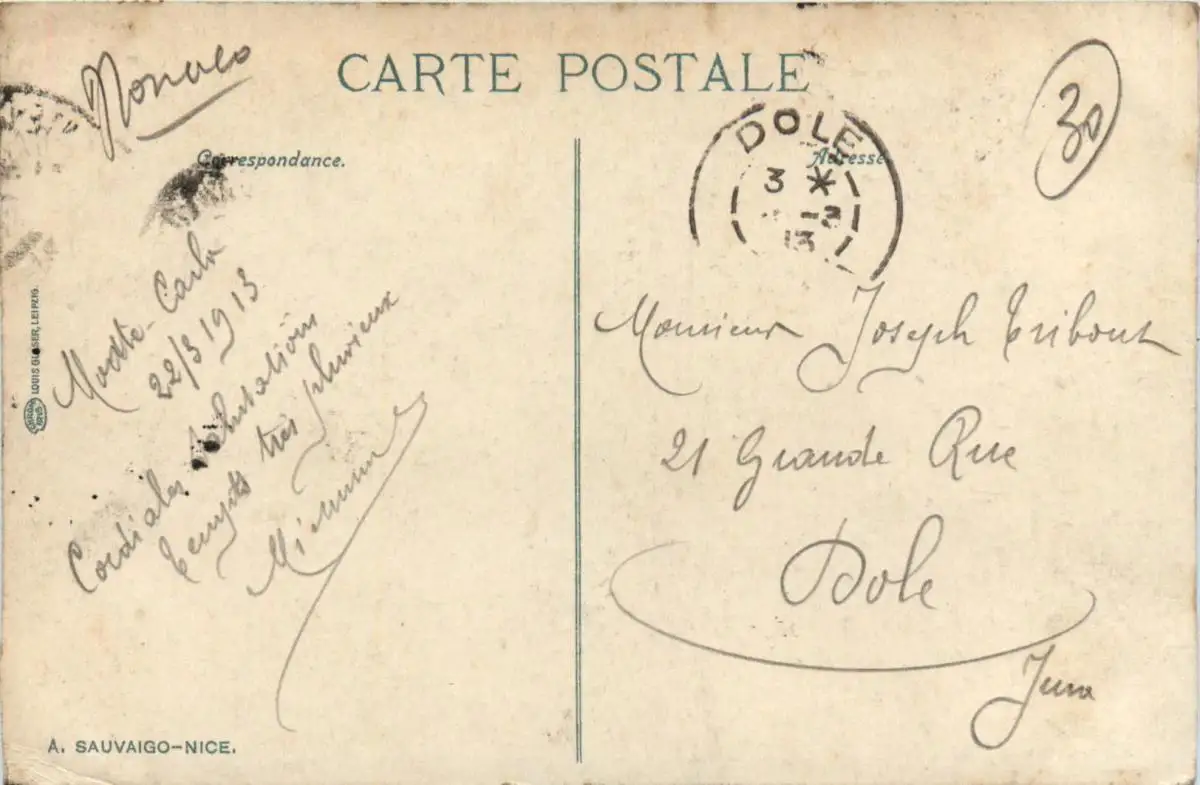 Monaco
CARTE POSTALE
30
Correspondance.
Adresse
DOLE
3 *
-3
13
Monte-Carlo
22/3 1913
Cordiales salutations
temps très pluvieux
LOUIS GLASER, LEIPZIG.
Monsieur Joseph Tribout
21 Grande Rue
Dole
Jura
A. SAUVAIGO-NICE.